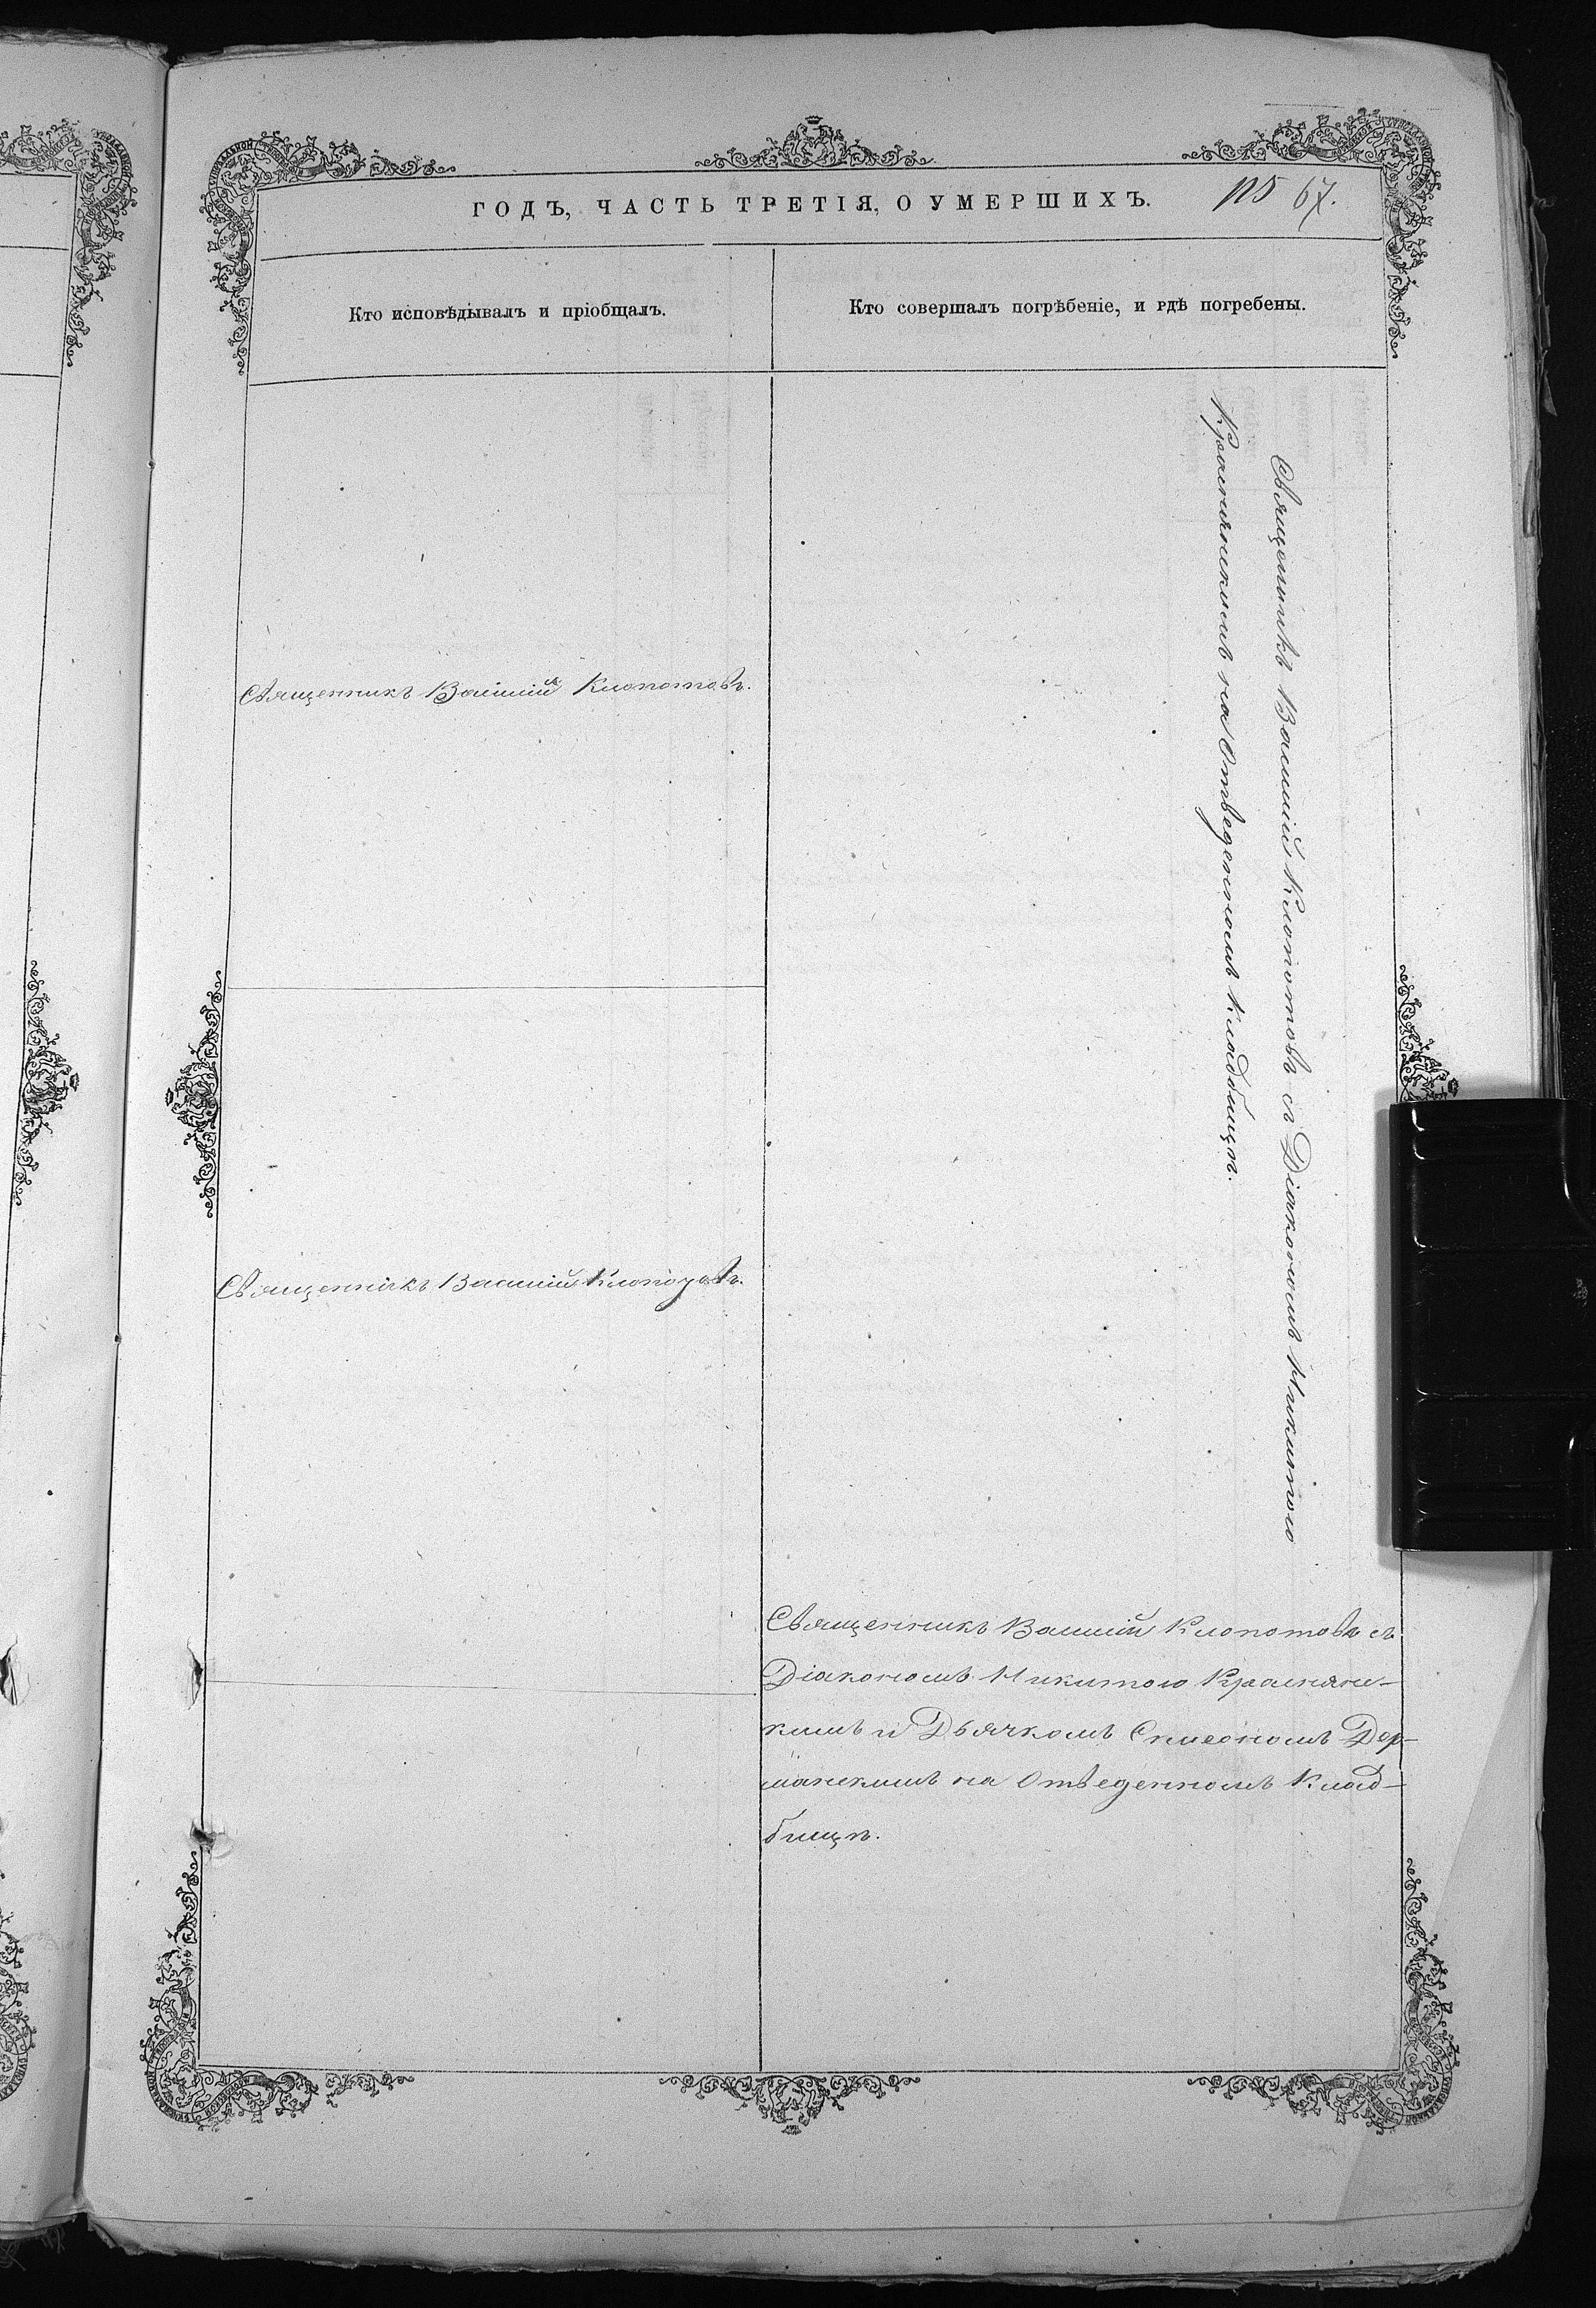 ГОДЪ, ЧАСТЬ ТРЕТІЯ, О УМЕРШИХЪ.
67.
Кто исповѣдывалъ и пріобщалъ.
Кто совершалъ погрѣбеніе, и гдѣ погребены.
Священникъ Василій Клопотовъ.
Священникъ Василій Клопотовъ.
Священникъ Василій Клопотовъ съ Діакономъ Никитою
Краснянскимъ на Отведенномъ Кладбищѣ.
Священникъ Василій Клопотовъ съ
Діакономъ Никитою Краснянс-
кимъ и Дьячкомъ Симеономъ Дер-
манскимъ на Отведенномъ Клад-
бищѣ.